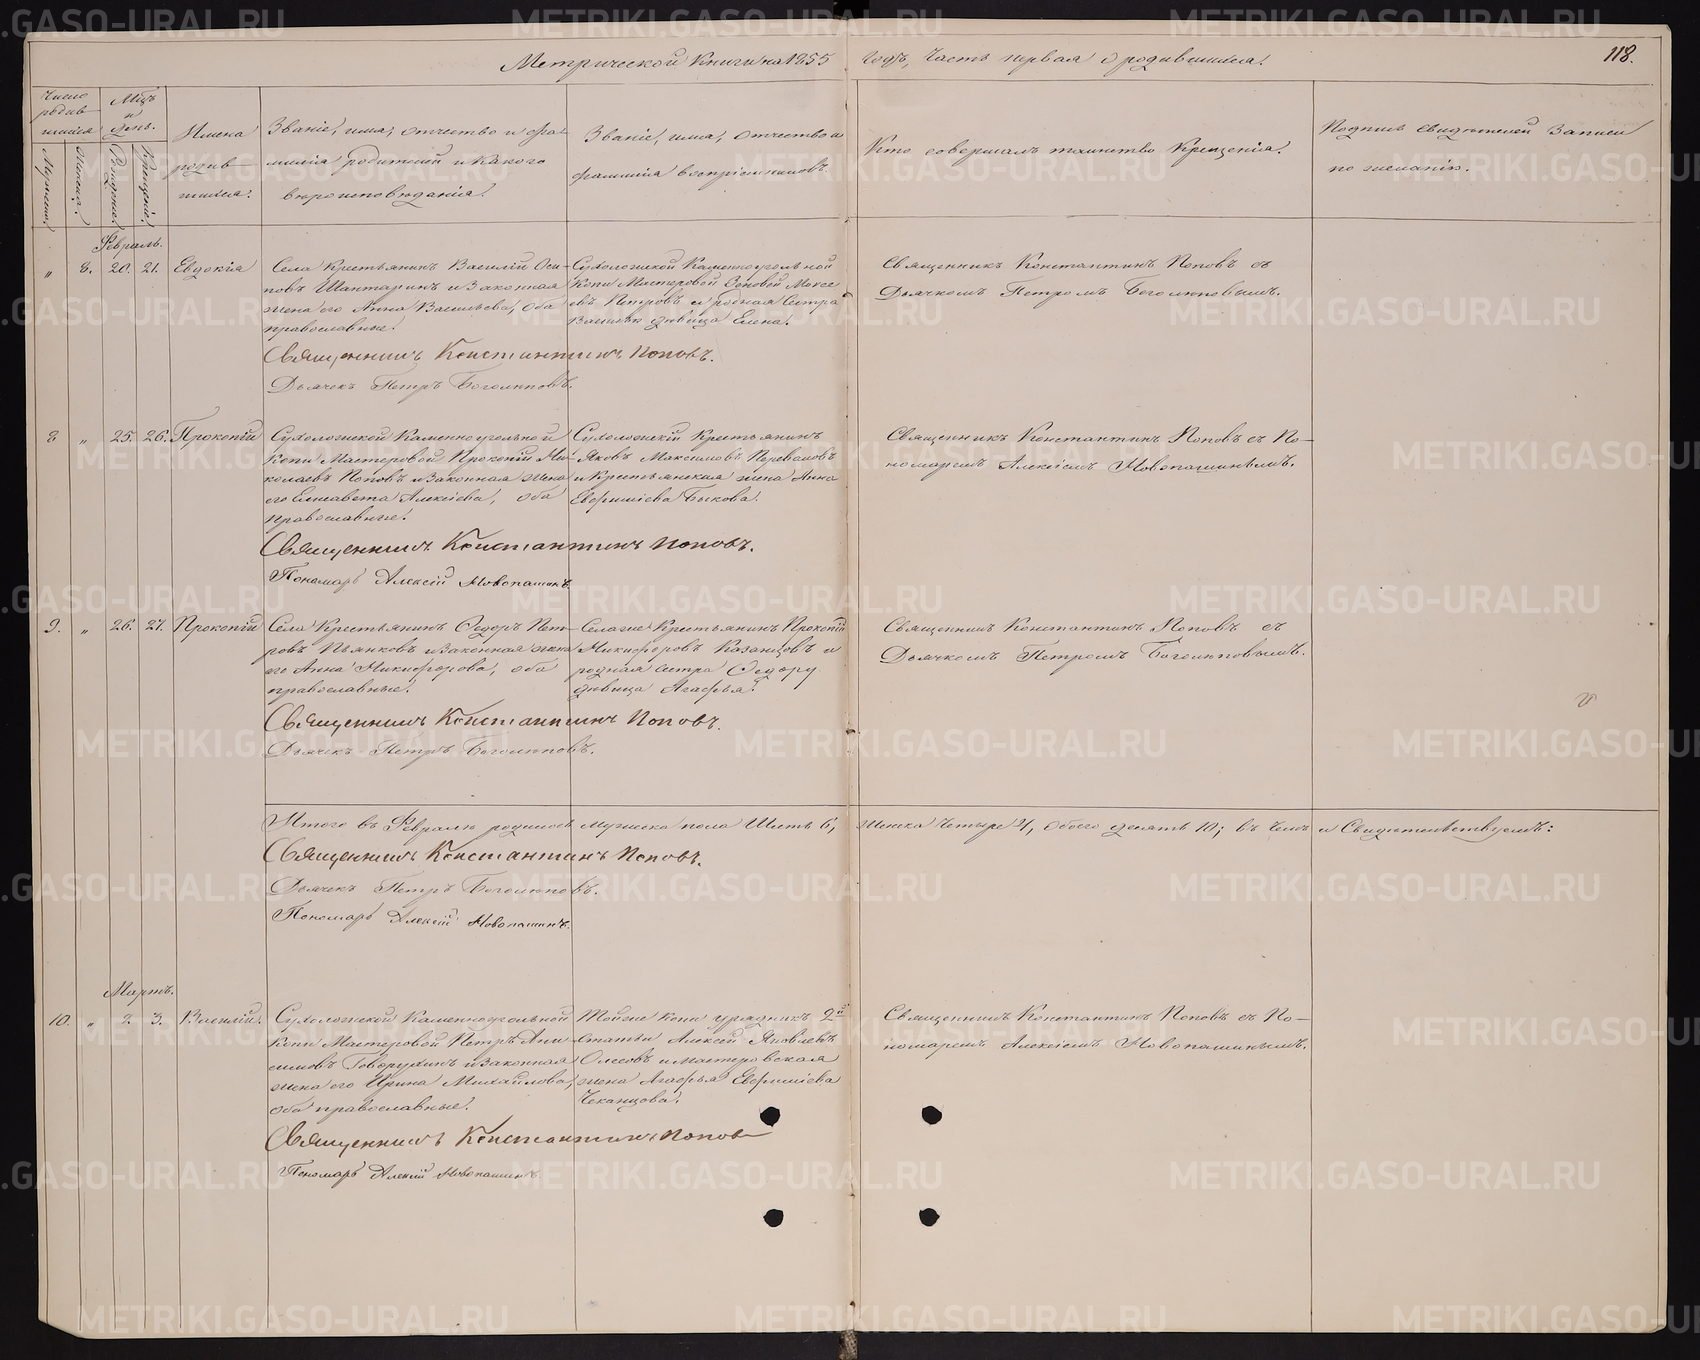 Метрической Книги на 1855 годъ, Часть первая о родившихся.
118.
Число родившихся
Мужеска.
Женска.
Мѣцъ и день.
Рожденіе.
Крещеніе.
Имена родившихся.
Званіе, имя, отчество и фамилія родителей и какого вѣроисповѣданія.
Званіе, имя, отчество и фамилія воспріемниковъ.
Кто совершалъ таинство Крещенія.
Подпись свидѣтелей записи по желанію.
Февраль.
„ 8. 20. 21. Евдокія
Села Крестьянинъ Василій Оси-
повъ Шантаринъ и законная
жена его Анна Васильева, оба
православные.
Сухоложской Каменноугольной
Копи Мастеровой
евъ Петровъ и родная сестра
Василья дѣвица Елена.
Священникъ Константинъ Поповъ съ
Дьячкомъ Петромъ Боголюповымъ.
Священникъ Константинъ Поповъ.
Дьячекъ Петръ Боголюповъ.
8 „ 25. 26. Прокопій
Сухоложской Каменноугольной
Копи Мастеровой Прокопій Ни-
колаевъ Поповъ и законная жена
его Елисавета Алексіева, оба
православные.
Сухоложскій Крестьянинъ
Яковъ Максимовъ Переваловъ
и Крестьянская жена Анна
Евфиміева Быкова.
Священникъ Константинъ Поповъ съ По-
номаремъ Алексіемъ Новопашинымъ.
Священникъ Константинъ Поповъ.
Пономарь Алексій Новопашинъ
9. „ 26. 27. Прокопій
Села Крестьянинъ Ѳедоръ Пет-
ровъ Пьянковъ и законная жена
его Анна Никифорова, оба
православные.
Села же Крестьянинъ Прокопій
Никифоровъ Казанцовъ и
родная сестра Ѳедору
дѣвица Агафья.
Священникъ Константинъ Поповъ съ
Дьячкомъ Петромъ Боголюповымъ.
Священникъ Константинъ Поповъ.
Дьячекъ Петръ Боголюповъ.
Итого въ Февралѣ родилось мужеска пола Шесть 6, женска Четыре 4, обоего десять 10; въ чемъ и Свидѣтельствуемъ:
Священникъ Константинъ Поповъ.
Дьячекъ Петръ Боголюповъ.
Пономарь Алексій Новопашинъ.
Мартъ.
10. „ 2. 3. Василій.
Сухоложской Каменноугольной
Копи Мастеровой Петръ Ани-
симовъ Говорухинъ и законная
жена его Ирина Михайлова,
оба православные.
Тойже Копи урядникъ 2й
статьи Алексій Яковлевъ
Олесовъ и мастеровская
жена Агафья Евфиміева
Чеканцова.
Священникъ Константинъ Поповъ съ По-
номаремъ Алексіемъ Новопашинымъ.
Священникъ Константинъ Поповъ
Пономарь Алексій Новопашинъ.
METRIKI.GASO-URAL.RU